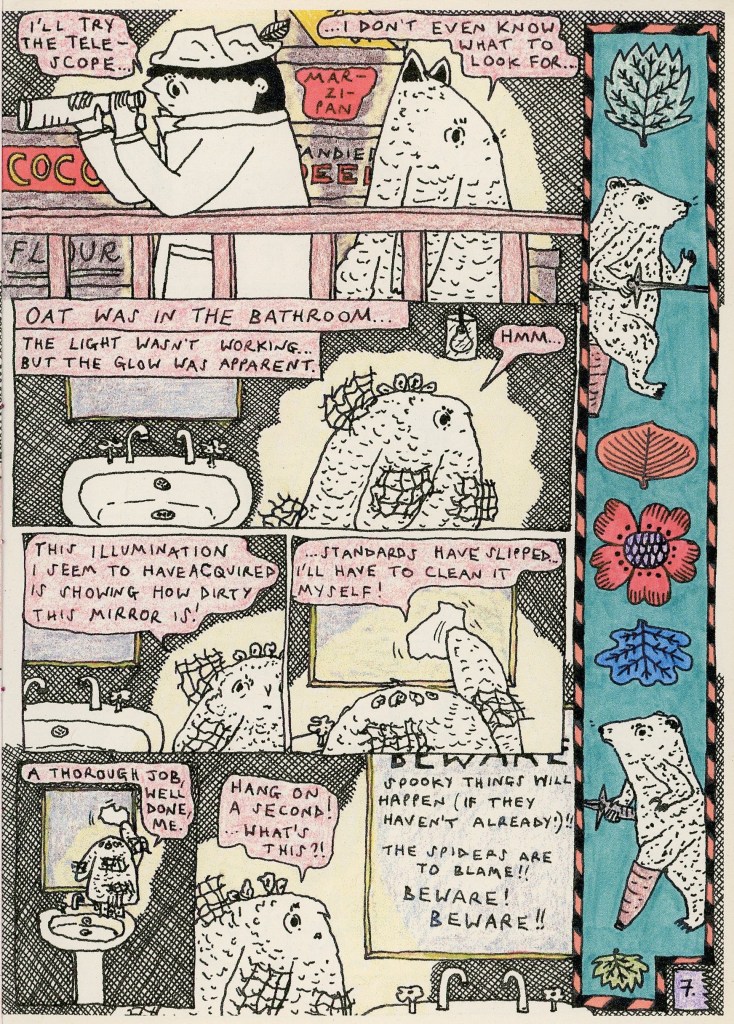 I'LL TRY
THE TELE-
SCOPE...
...I DON'T EVEN KNOW
WHAT TO
LOOK FOR...
MAR-
ZI-
PAN
COCO
ANDIED
PEEL
FLOUR
OAT WAS IN THE BATHROOM...
THE LIGHT WASN'T WORKING...
BUT THE GLOW WAS APPARENT.
HMM...
THIS ILLUMINATION
I SEEM TO HAVE ACQUIRED
IS SHOWING HOW DIRTY
THIS MIRROR IS!
...STANDARDS HAVE SLIPPED...
I'LL HAVE TO CLEAN IT
MYSELF!
A THOROUGH JOB,
WELL
DONE,
ME.
HANG ON
A SECOND!
...WHAT'S
THIS?!
BEWARE
SPOOKY THINGS WILL
HAPPEN (IF THEY
HAVEN'T ALREADY!)!!
THE SPIDERS ARE
TO BLAME!!
BEWARE!
BEWARE!!
7.